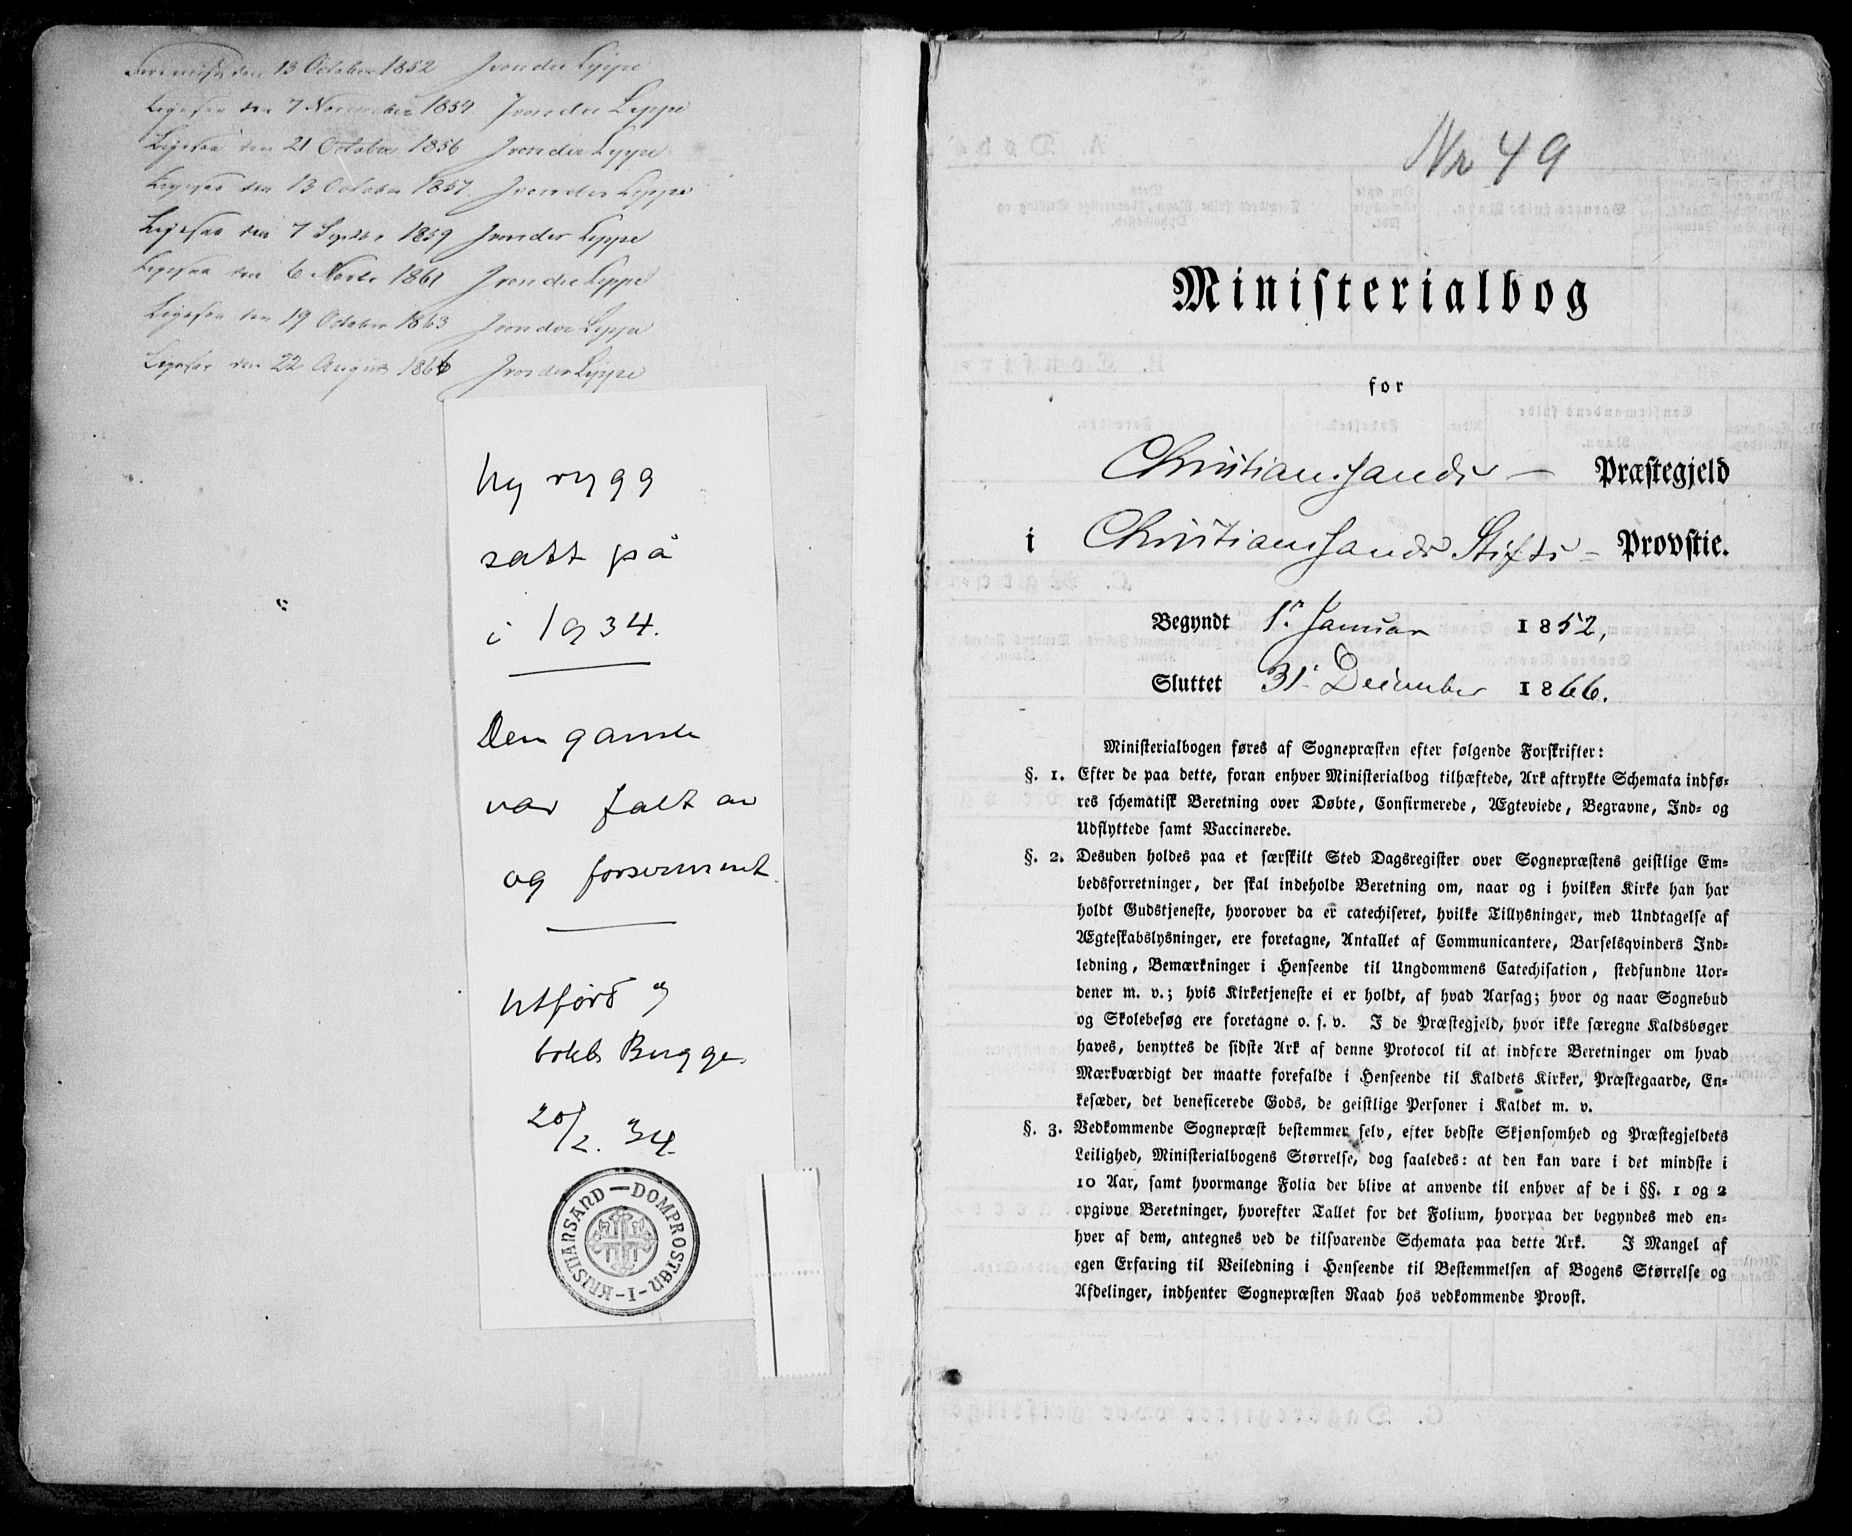 Foreviist den 13 October 1852 J von der Lippe
Ligesaa den 7 November 1854. J von der Lippe
Ligesaa den 21 October 1856 J von der Lippe
Ligesaa den 13 October 1857. J von der Lippe
Ligesaa den 7 Septbr 1859 J von der Lippe
Ligesaa den 6 Novbr 1861 J von der Lippe
Ligesaa den 19 October 1863 J von der Lippe
Ligesaa den 22 August 1866 J von der Lippe
Ny rygg
satt på
i 1934.
Den gamle
var falt av
og forsvunnet.
Utført av
bokb. Bugge.
20/2. 34.
DOMPROSTEN-I-KRISTIANSAND
Nr 49
Ministerialbog
for
Christianssands - Præstegjeld
i Christianssands Stifts - Provstie.
Begyndt 1. Januar 1852,
Sluttet 31. December 1866.
Ministerialbogen føres af Sognepræsten efter følgende Forskrifter:
§. 1. Efter de paa dette, foran enhver Ministerialbog tilhæftede, Ark aftrykte Schemata indfø-
res schematisk Beretning over Døbte, Confirmerede, Ægteviede, Begravne, Ind- og
Udflyttede samt Vaccinerede.
§. 2. Desuden holdes paa et særskilt Sted Dagsregister over Sognepræstens geistlige Em-
bedsforretninger, der skal indeholde Beretning om, naar og i hvilken Kirke han har
holdt Gudstjeneste, hvorover da er catechiseret, hvilke Tillysninger, med Undtagelse af
Ægteskabslysninger, ere foretagne, Antallet af Communicantere, Barselsqvinders Ind-
ledning, Bemærkninger i Henseende til Ungdommens Catechisation, stedfundne Uor-
dener m. v.; hvis Kirketjeneste ei er holdt, af hvad Aarsag; hvor og naar Sognebud
og Skolebesøg ere foretagne o. s. v. I de Præstegjeld, hvor ikke særegne Kaldsbøger
haves, benyttes de sidste Ark af denne Protocol til at indføre Beretninger om hvad
Mærkværdigt der maatte forefalde i Henseende til Kaldets Kirker, Præstegaarde, En-
kesæder, det beneficerede Gods, de geistlige Personer i Kaldet m. v.
§. 3. Vedkommende Sognepræst bestemmer selv, efter bedste Skjønsomhed og Præstegjeldets
Leilighed, Ministerialbogens Størrelse, dog saaledes: at den kan vare i det mindste i
10 Aar, samt hvormange Folia der blive at anvende til enhver af de i §§. 1 og 2
opgivne Beretninger, hvorefter Tallet for det Folium, hvorpaa der begyndes med en-
hver af dem, antegnes ved de tilsvarende Schemata paa dette Ark. I Mangel af
egen Erfaring til Veiledning i Henseende til Bestemmelsen af Bogens Størrelse og
Afdelinger, indhenter Sognepræsten Raad hos vedkommende Provst.